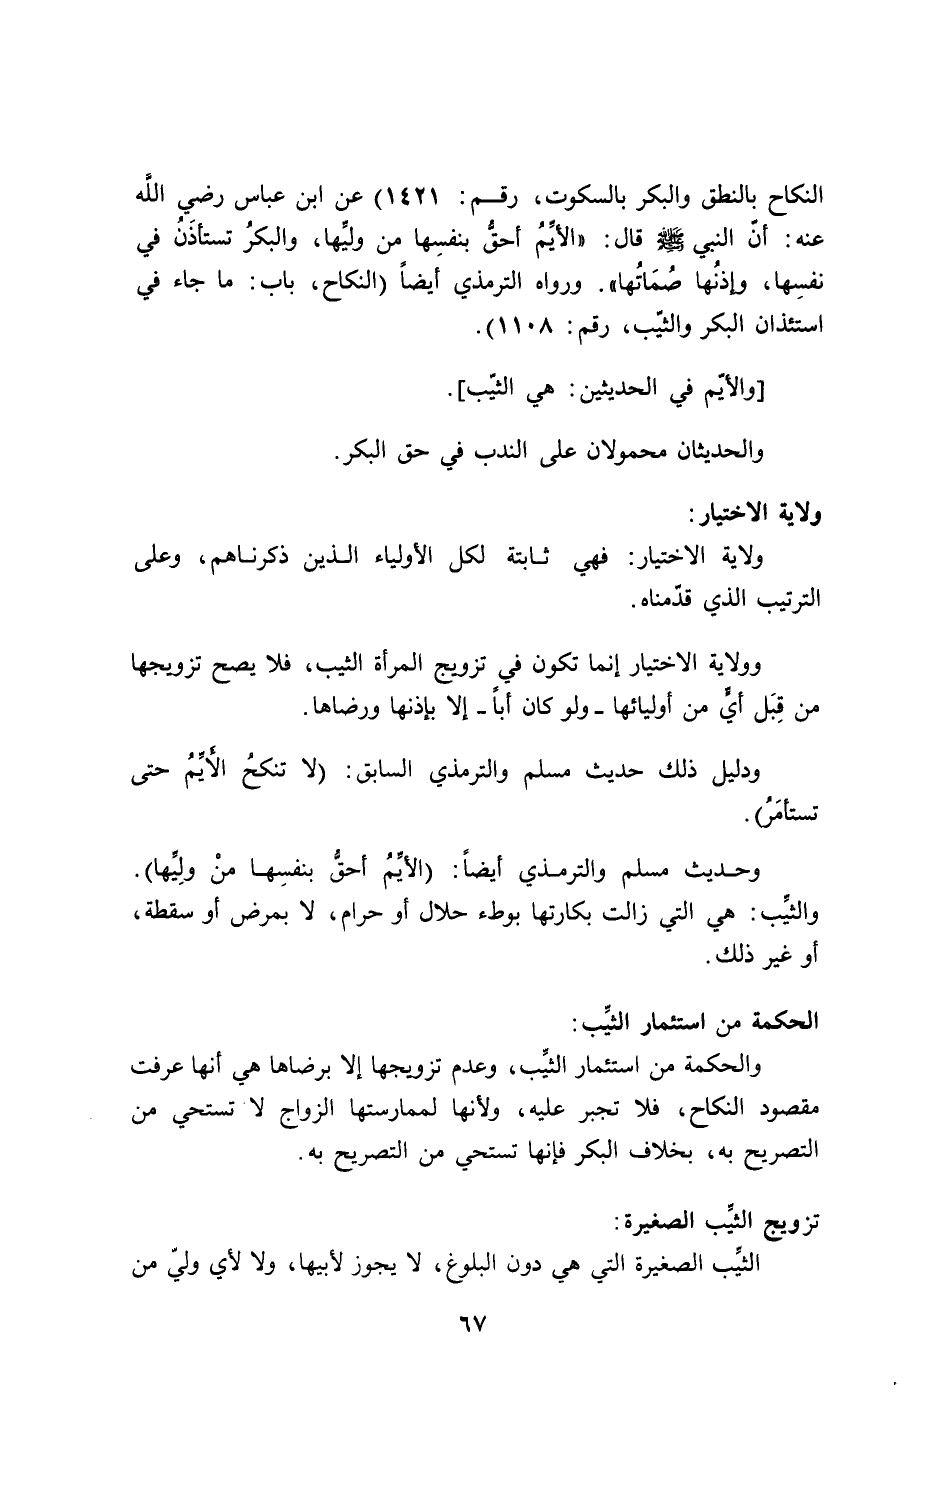 النكاح بالنطق والبكر بالسكوت، رقـم: ١٤٢١) عن ابن عباس رضي اللَّه
عنه: أنّ النبي ﷺ قال: «الأيِّمُ أحقُّ بنفسِها من وليِّها، والبكرُ تستأذَنُ في
نفسِها، وإذنُها صُمَاتُها». ورواه الترمذي أيضاً (النكاح، باب: ما جاء في
استئذان البكر والثيّب، رقم: ١١٠٨).
[والأيّم في الحديثين: هي الثيّب].
والحديثان محمولان على الندب في حق البكر.
ولاية الاختيار:
ولاية الاختيار: فهي ثـابتة لكل الأولياء الـذين ذكرنـاهم، وعلى
الترتيب الذي قدّمناه.
وولاية الاختيار إنما تكون في تزويج المرأة الثيب، فلا يصح تزويجها
من قِبَل أيٍّ من أوليائها ـ ولو كان أباً ـ إلا بإذنها ورضاها.
ودليل ذلك حديث مسلم والترمذي السابق: (لا تنكحُ الأَيِّمُ حتى
تستأمَرُ).
وحـديث مسلم والترمـذي أيضاً: (الأيِّمُ أحقُّ بنفسِهـا منْ ولِيِّها).
والثيِّب: هي التي زالت بكارتها بوطء حلال أو حرام، لا بمرض أو سقطة،
أو غير ذلك.
الحكمة من استئمار الثيِّب:
والحكمة من استئمار الثيِّب، وعدم تزويجها إلا برضاها هي أنها عرفت
مقصود النكاح، فلا تجبر عليه، ولأنها لممارستها الزواج لا تستحي من
التصريح به، بخلاف البكر فإنها تستحي من التصريح به.
تزويج الثيِّب الصغيرة:
الثيِّب الصغيرة التي هي دون البلوغ، لا يجوز لأبيها، ولا لأي وليّ من
٦٧